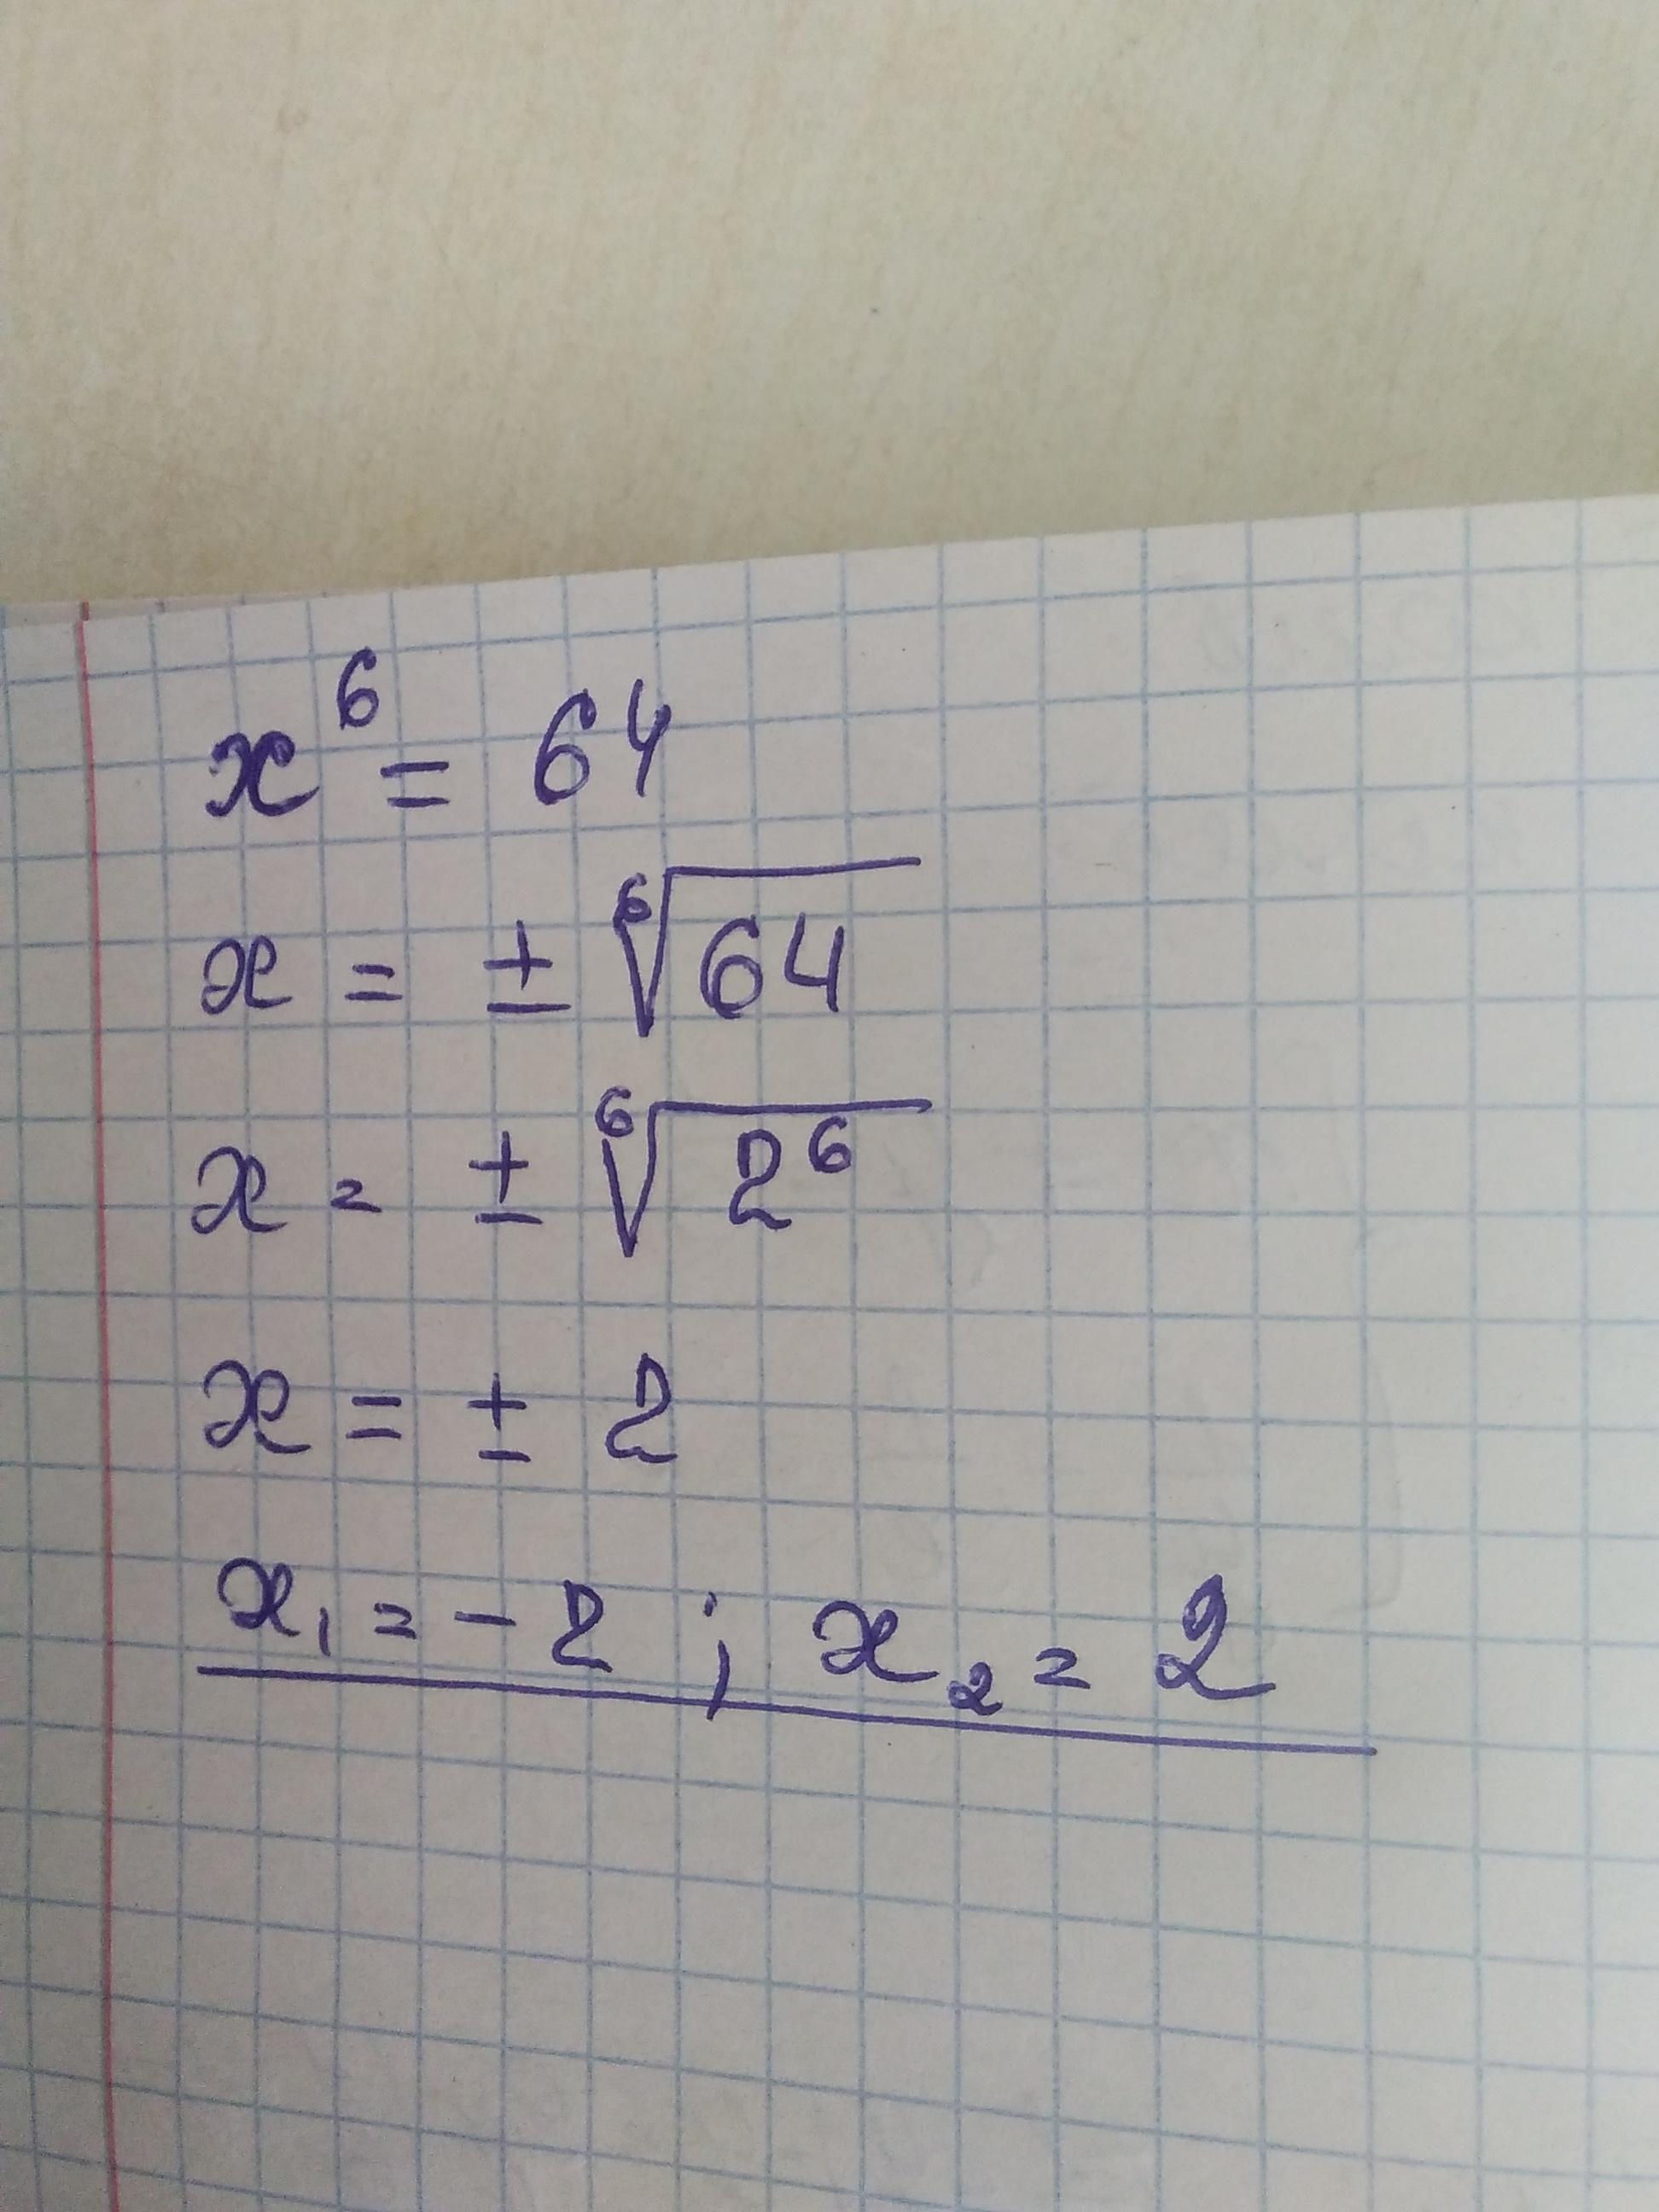 x⁶ = 64
x = ± ⁶√64
x = ± ⁶√2⁶
x = ± 2
x₁ = - 2 ; x₂ = 2